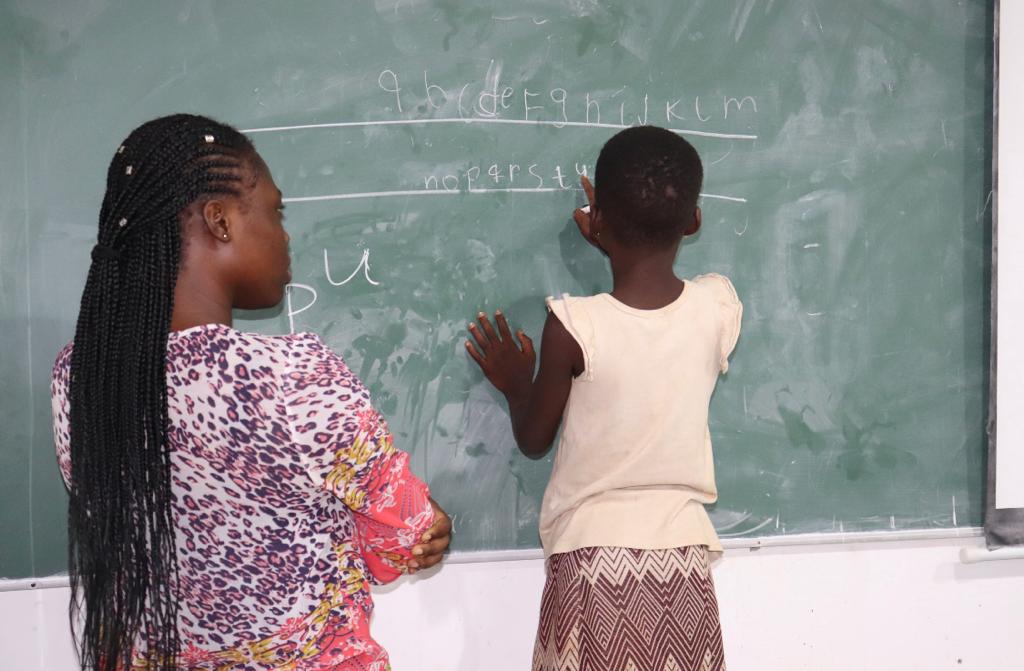 a b c d e F g h i J K l m
n o p q r s t u
U
P